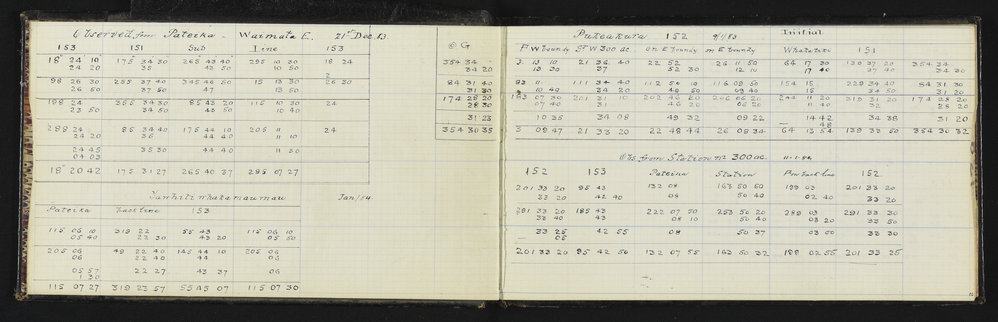 Observed from Pateika - Waimata E. 21st Dec. 83.
153 151 Sub Line 153
18° 24 10 175 34 30 265 43 40 295 10 30 18 24
24 20 35 43 50 10 50
98 26 30 255 37 40 345 46 50 15 13 30 26 30
26 50 37 50 47 13 50
198 24 355 34 30 85 43 20 115 10 30 24
23 50 34 50 43 40 10 50
288 24 85 34 40 175 44 10 205 11 24
24 20 36 44 40 11 10
24 45 35 30 44 40 11 30
04 03
18° 20 42 175 31 27 265 40 37 295 07 27
⊙ G
354 34
34 20
84 31 40
31 30
174 28 20
28 30
31 23
354 30 35
Tanhitinhakamaumau Jan/84.
Pateika Back line 153
115 06 10 319 22 55 43 115 06 10
05 40 22 30 43 20 05 50
205 06 49 22 40 145 44 10 205 06
06 22 40 44 06
05 57 22 27 43 37 06
1 30
115 07 27 319 23 57 55 45 07 115 07 30
Pukeakura 152 9/1/83 Initial
F W bound'y St W 300 ac. on E bound'y on E bound'y Whakatuki 151
3 13 10 21 36 40 22 52 26 11 50 64 17 30 139 37 20 354 34
13 30 37 52 30 12 10 17 40 37 40 34 30
93 11 111 34 40 112 50 10 116 09 50 154 15 229 34 40 84 31 30
10 40 34 20 49 50 09 40 15 34 50 31 20
183 07 30 201 31 10 202 46 40 206 06 20 244 11 20 319 31 20 174 28 20
07 40 31 46 20 06 20 11 40 32 28 20
10 35 34 08 49 32 09 22 14 42 34 38 31 20
48
3 09 47 21 33 20 22 48 44 26 08 34 64 13 54 139 33 50 354 30 32
Obs from Station nr 300 ac. 11-1-84.
152 153 Pateika Station Prev back line 152
201 33 20 95 43 132 08 163 50 50 199 03 201 33 20
33 20 42 40 08 50 40 02 40 33 20
291 33 20 185 43 222 07 50 253 50 20 289 03 291 33 30
33 40 43 08 10 50 40 03 20 33 50
33 25 42 55 08 50 37 03 00 33 30
05
201 33 20 95 42 50 132 07 55 163 50 32 199 02 55 201 33 25